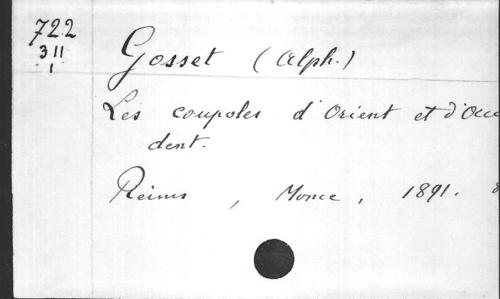 722
311
1
Gosset (Alph.)
Les coupoles d'Orient et d'Occi
dent.
Reims, Monce, 1891. 8